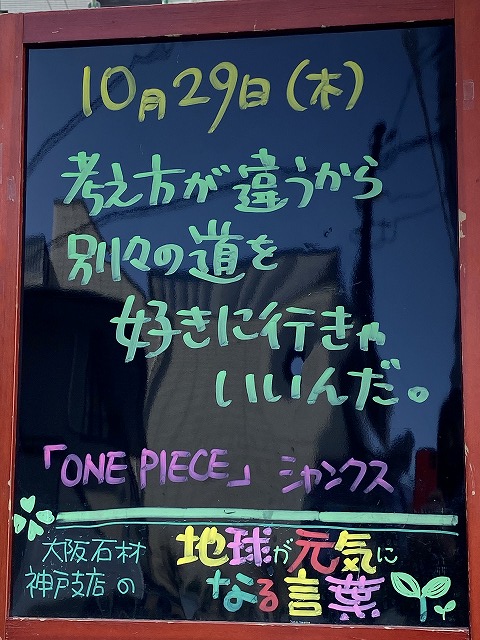 10月29日(木)
考え方が違うから
別々の道を
好きに行きゃ
いいんだ。
「ONE PIECE」 シャンクス
大阪石材
神戸支店の
地球が元気に
なる言葉